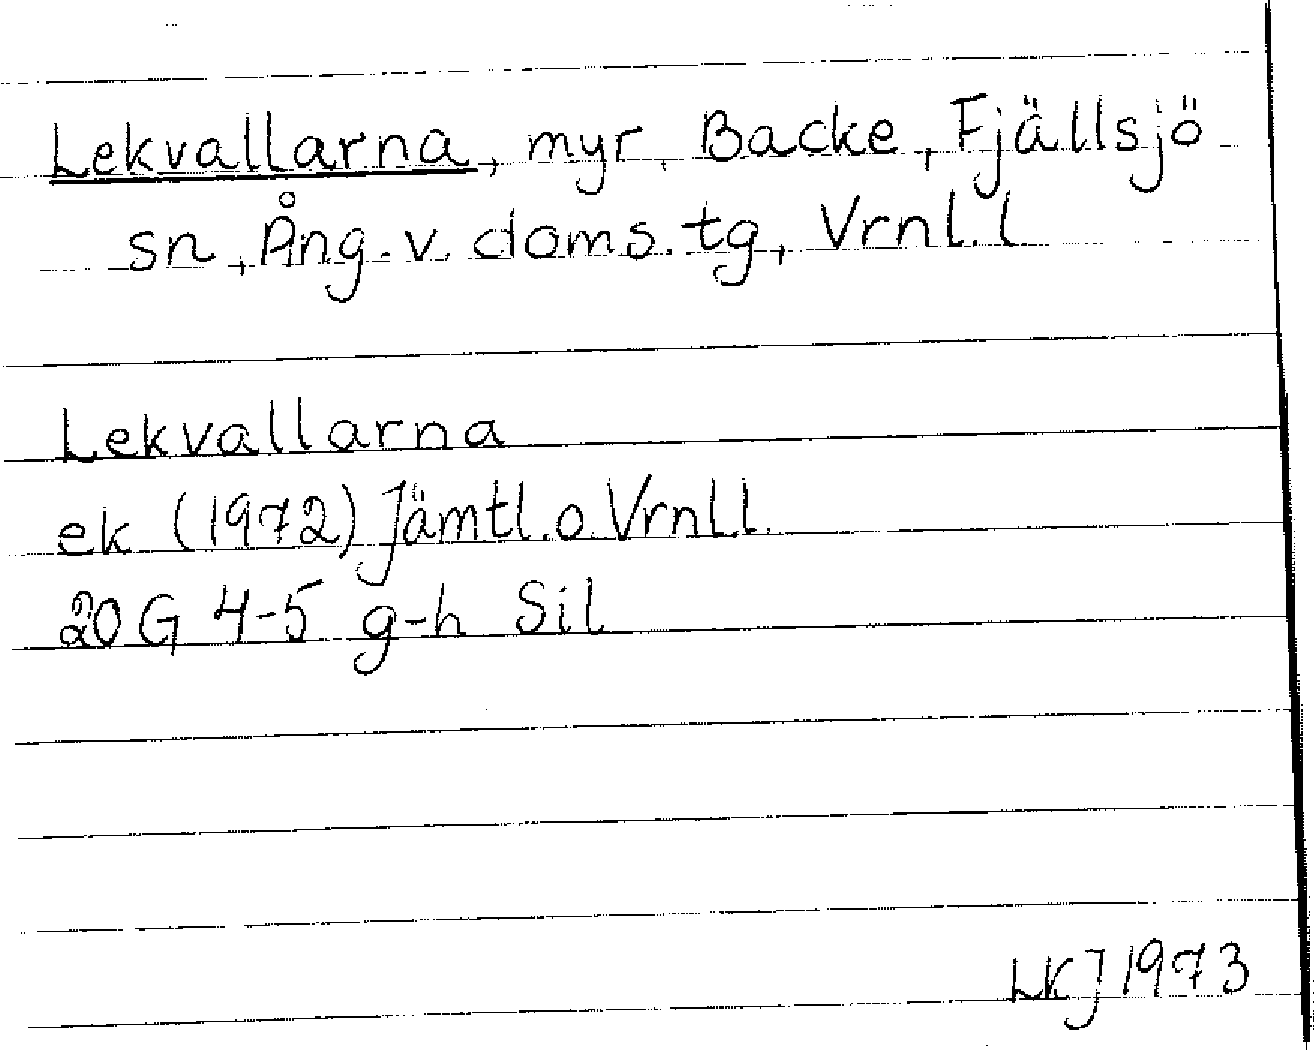 Lekvallarna, myr, Backe, Fjällsjö
sn, Ång. v. doms. tg, Vrnl. l
Lekvallarna
ek (1972) Jämtl. o. Vrnl l.
20 G 4-5 g-h Sil
LKJ 1973